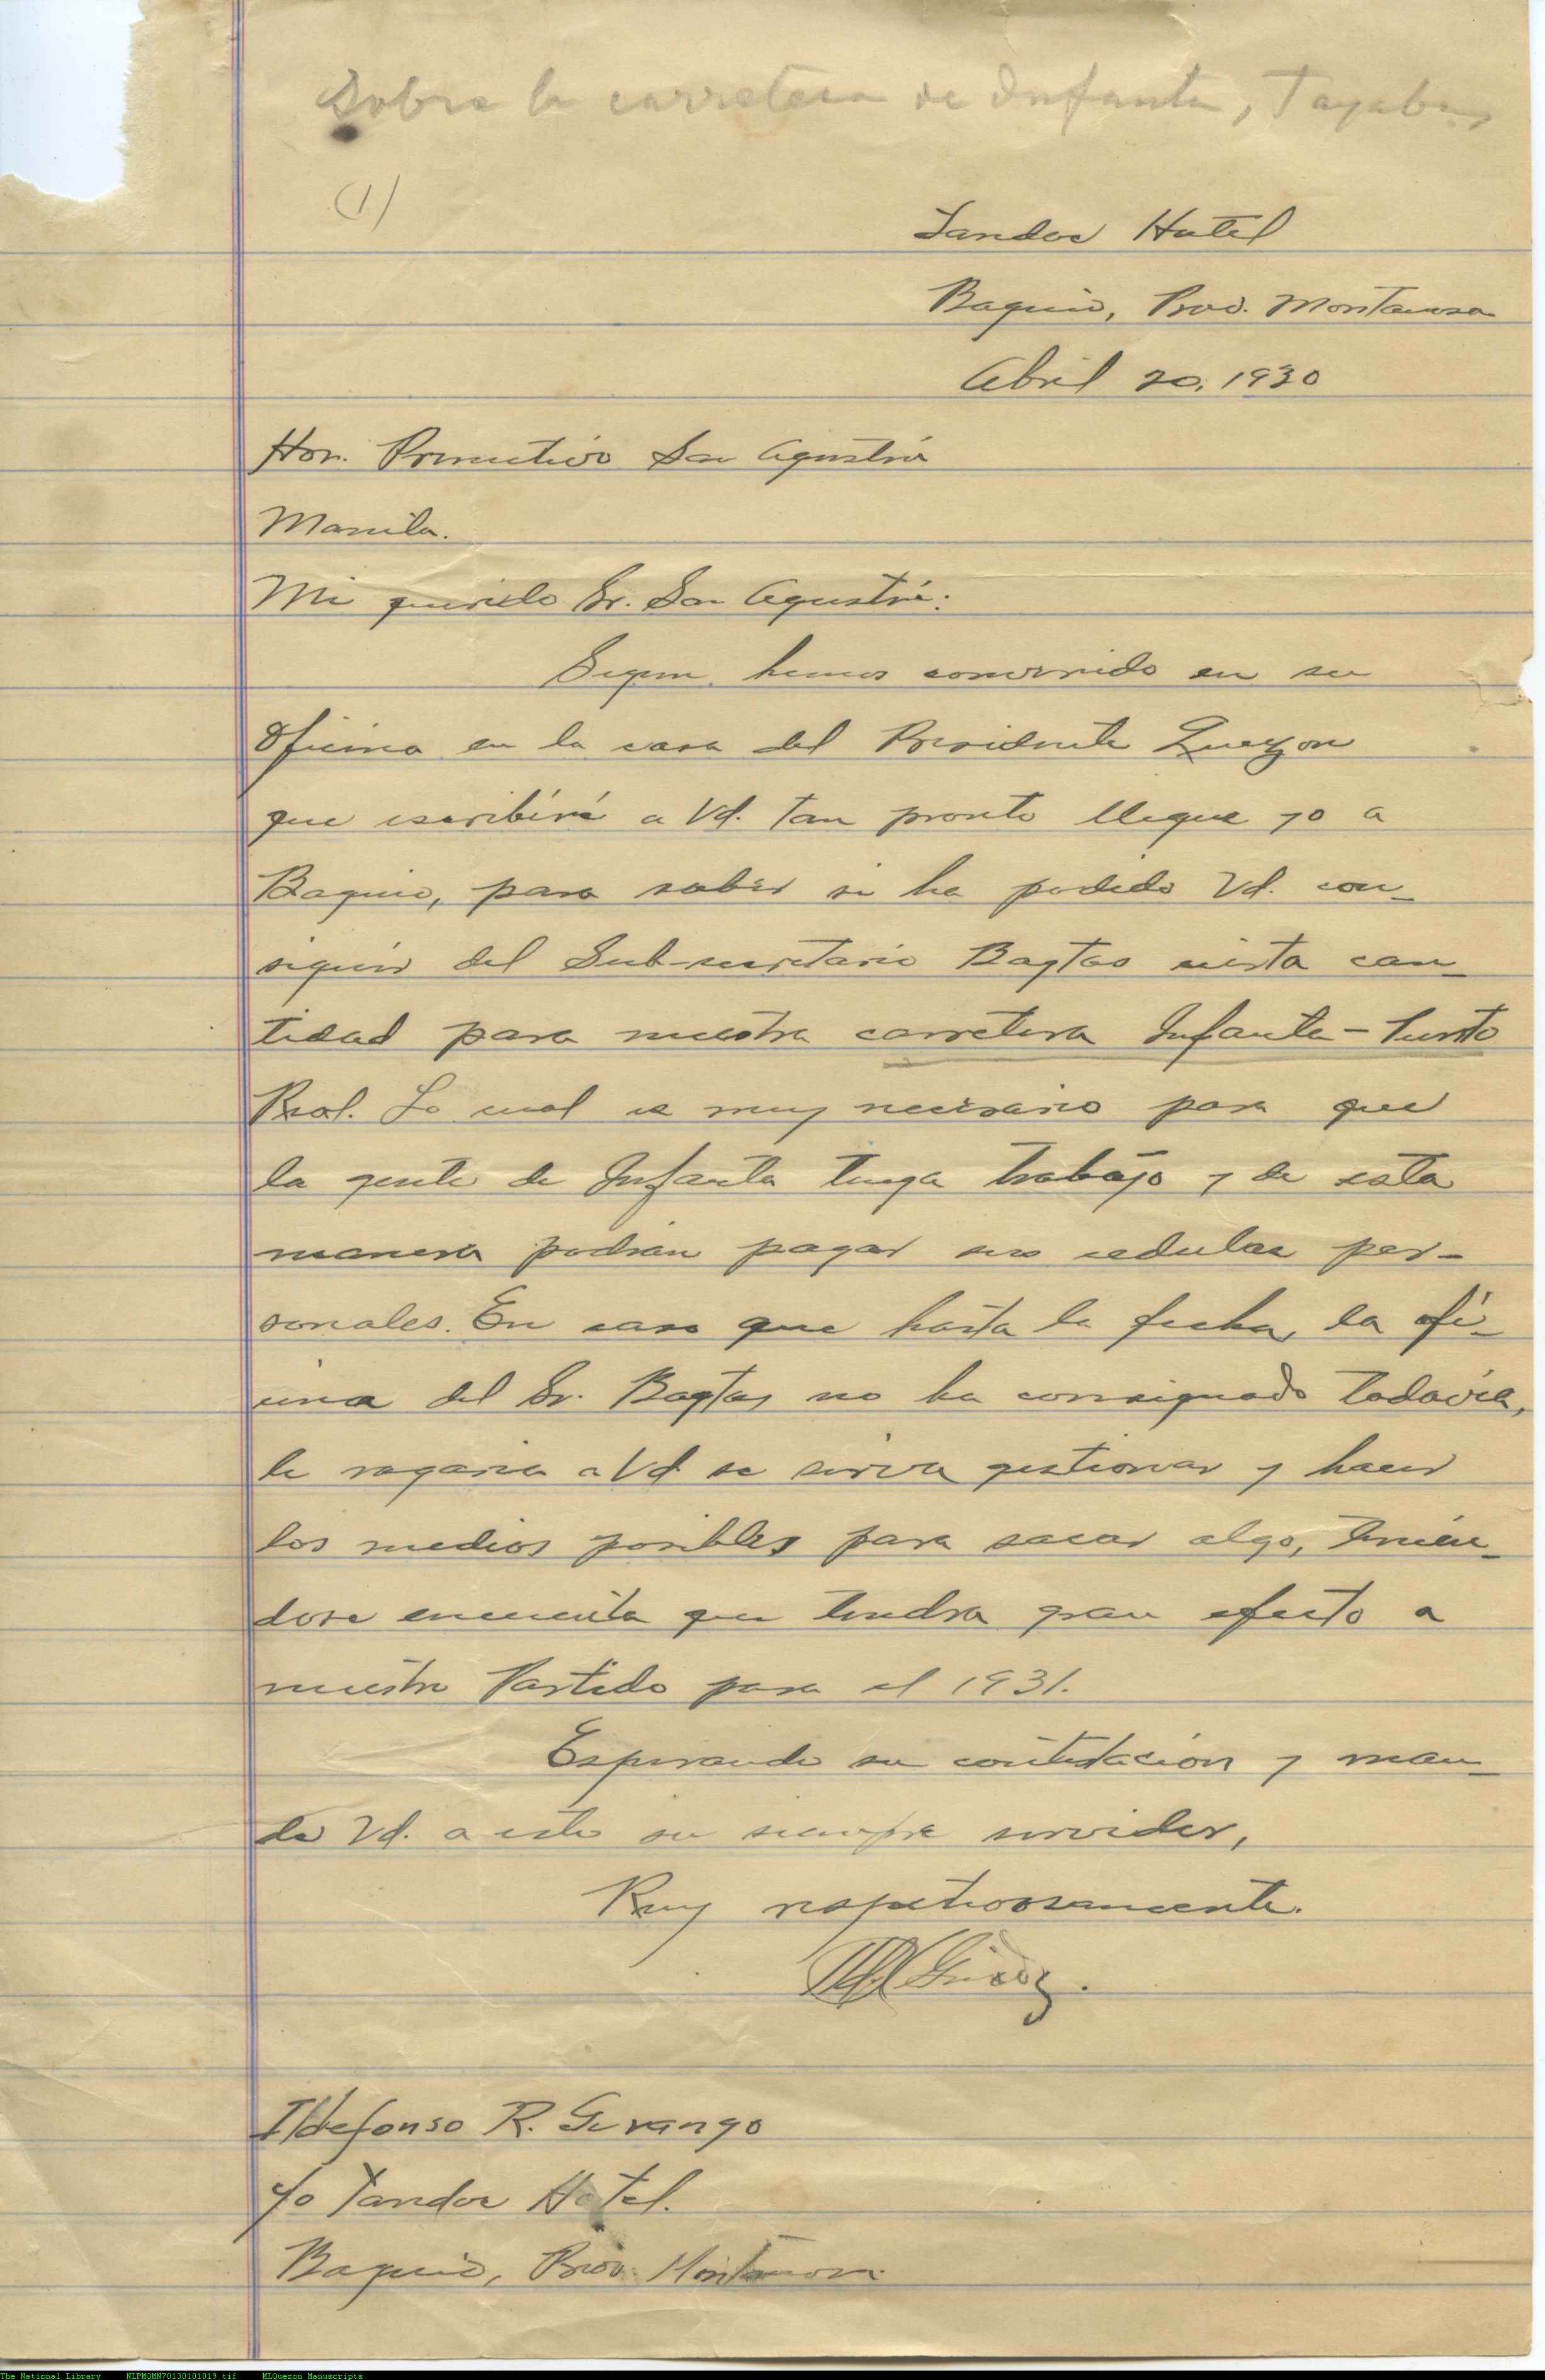 Sobre la carretera de Infanta, Tayabas
(1)
Tandoc Hotel
Baguio, Prov. Montañosa
Abril 20, 1930
Hon. Primitivo San Agustín
Manila.
Mi querido Sr. San Agustín:
Segun hemos convenido en su
oficina en la casa del Presidente Quezon
que escribiré a Vd. tan pronto llegue yo a
Baguio, para saber si ha podido Vd. con-
siguir del Sub-secretario Bagtas cierta can-
tidad para nuestra carretera Infanta-Puerto
Real. Lo cual es muy necesario para que
la gente de Infanta tenga trabajo y de esta
manera podran pagar sus cedulas per-
sonales. En caso que hasta la fecha, la ofi-
cina del Sr. Bagtas no ha consignado todavia,
le rogaria a Vd se sirva gestionar y hacer
los medios posibles para sacar algo, tenien-
dose encuenta que tendra gran efecto a
nuestro Partido para el 1931.
Esperando su contestación y man-
de Vd. a este su siempre servidor,
Muy respetuosamente.
Ildefonso R. Gurango
c/o Tandoc Hotel.
Baguio, Prov. Montañosa
The National Library NLPMQMN70130101019.tif MLQuezon Manuscripts